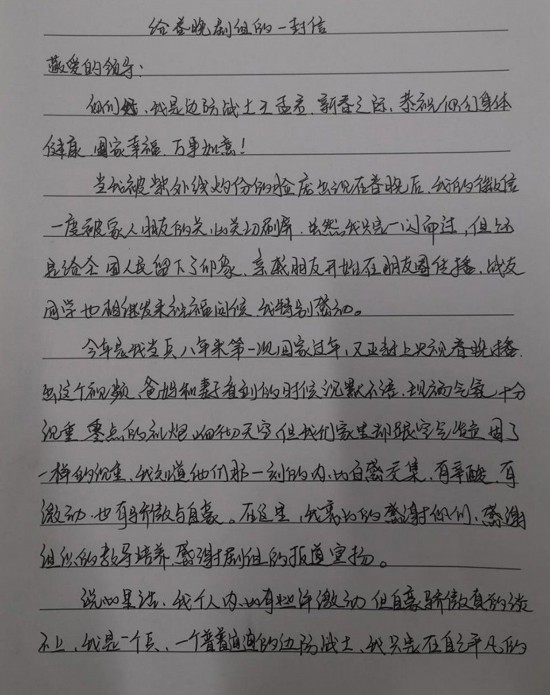 给春晚剧组的一封信
敬爱的领导:
你们好,我是边防战士王孟君.新春之际,恭祝你们身体
健康.国家幸福.万事如意!
当我被紫外线灼伤的脸庞出现在春晚后,我的微信
一度被家人朋友的关心关切刷屏.虽然我只是一闪而过,但还
是给全国人民留下了印象.亲戚朋友开始在朋友圈传播.战友
同学也相继发来祝福问候.我特别感动。
今年是我当兵八年来第一次回家过年,又正赶上央视春晚播
出这个视频.爸妈和妻子看到的时候沉默不语.现场气氛十分
沉重.零点的礼炮响彻天空但我们家里却跟空气凝固了
一样的沉重,我知道他们那一刻的内心百感交集,有辛酸.有
激动.也有骄傲与自豪。在这里,我衷心的感谢你们,感谢
组织的教导培养.感谢剧组的报道宣扬。
说心里话.我个人内心有些许激动但自豪骄傲真的谈
不上,我是一个兵,一个普普通通的边防战士,我只是在自己平凡的